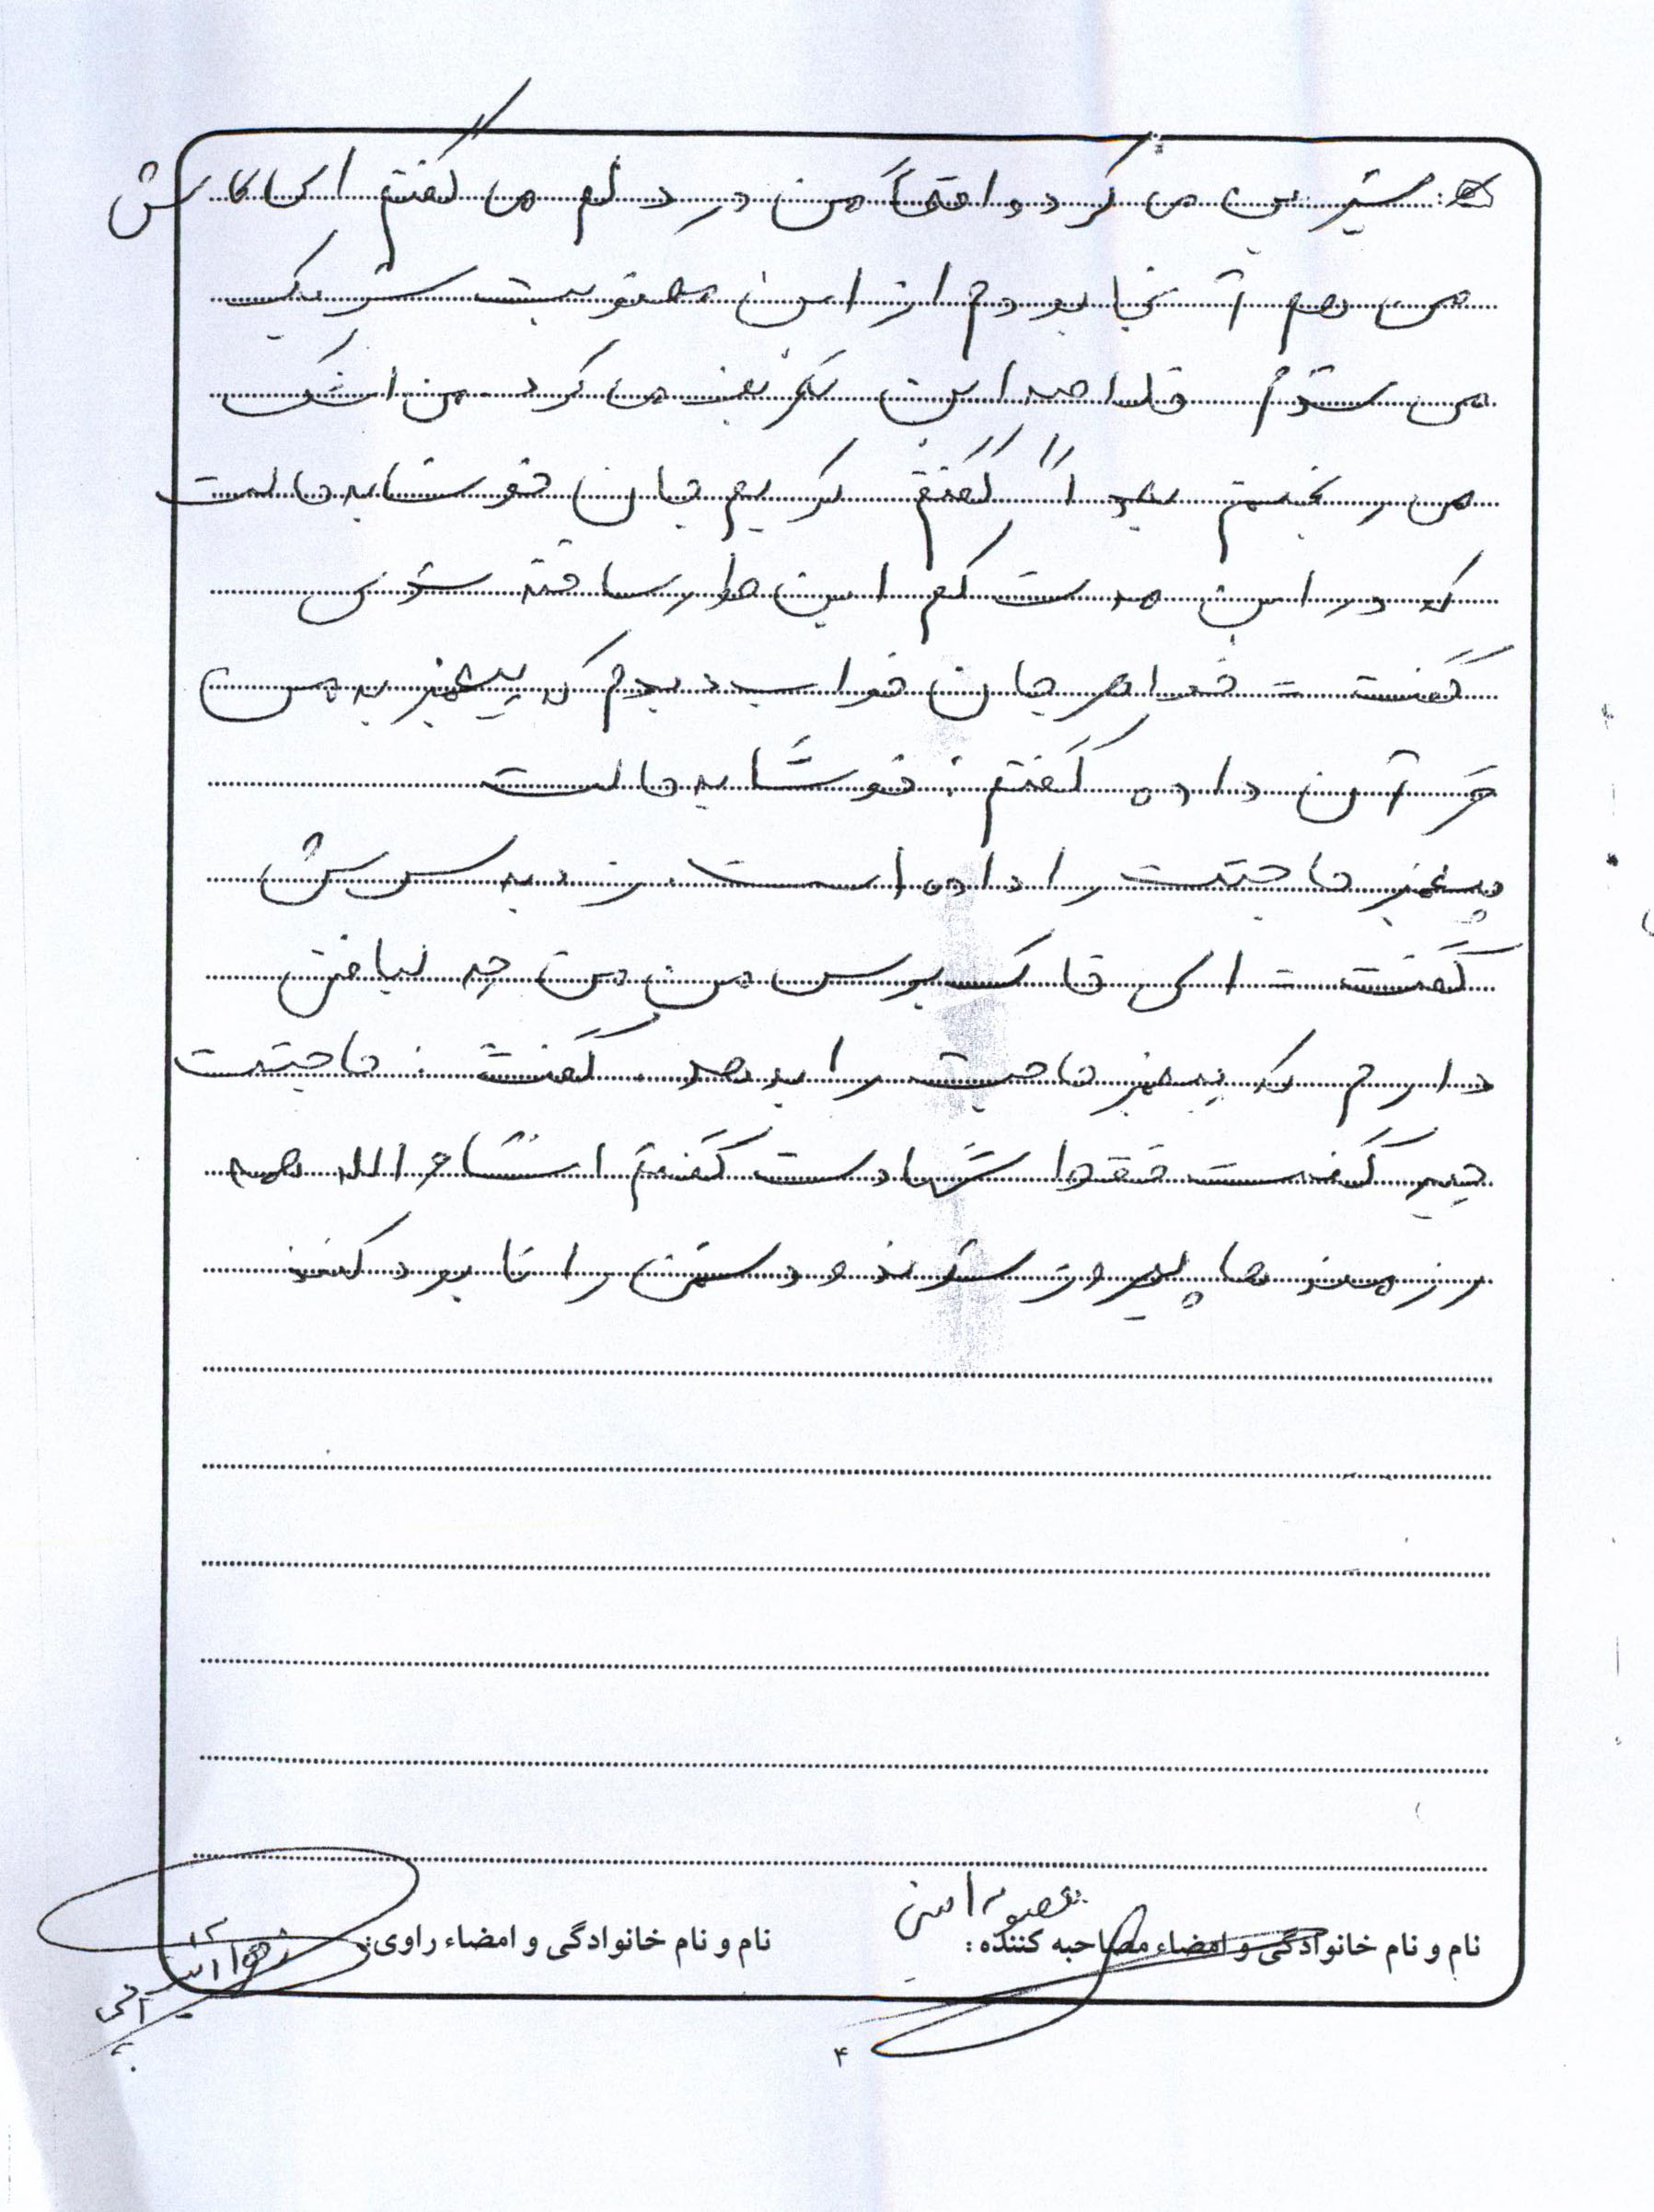 شیرین می کرد واقعاً من در دلم می گفتم ای کاش
من هم آنجا بودم از این معنویت شریک
می شدم قدا صد این تعریف می کرد. من اشک
می ریختم بعداً گفتم کریم جان خوشابه حالت
که در این مدت کم این طور ساخته شدی
گفت خواهر جان خواب دیدم که پیغمبر به من
قرآن داده گفتم: خوشا به حالت
پیغمبر حاجتت را داده است. زد به سرش
گفت ای خاک برسر من من چه لیاقتی
دارم که پیغمبر حاجت را بدهد. گفت: حاجتت
چیه گفت فقط شهادت گفتم انشاء الله همه
رزمنده ها پیروز شوند و دشمن را نابود کنند
معصومه امینی
نام و نام خانوادگی و امضاء مصاحبه کننده:
نام و نام خانوادگی و امضاء راوی:
زهرا
۴